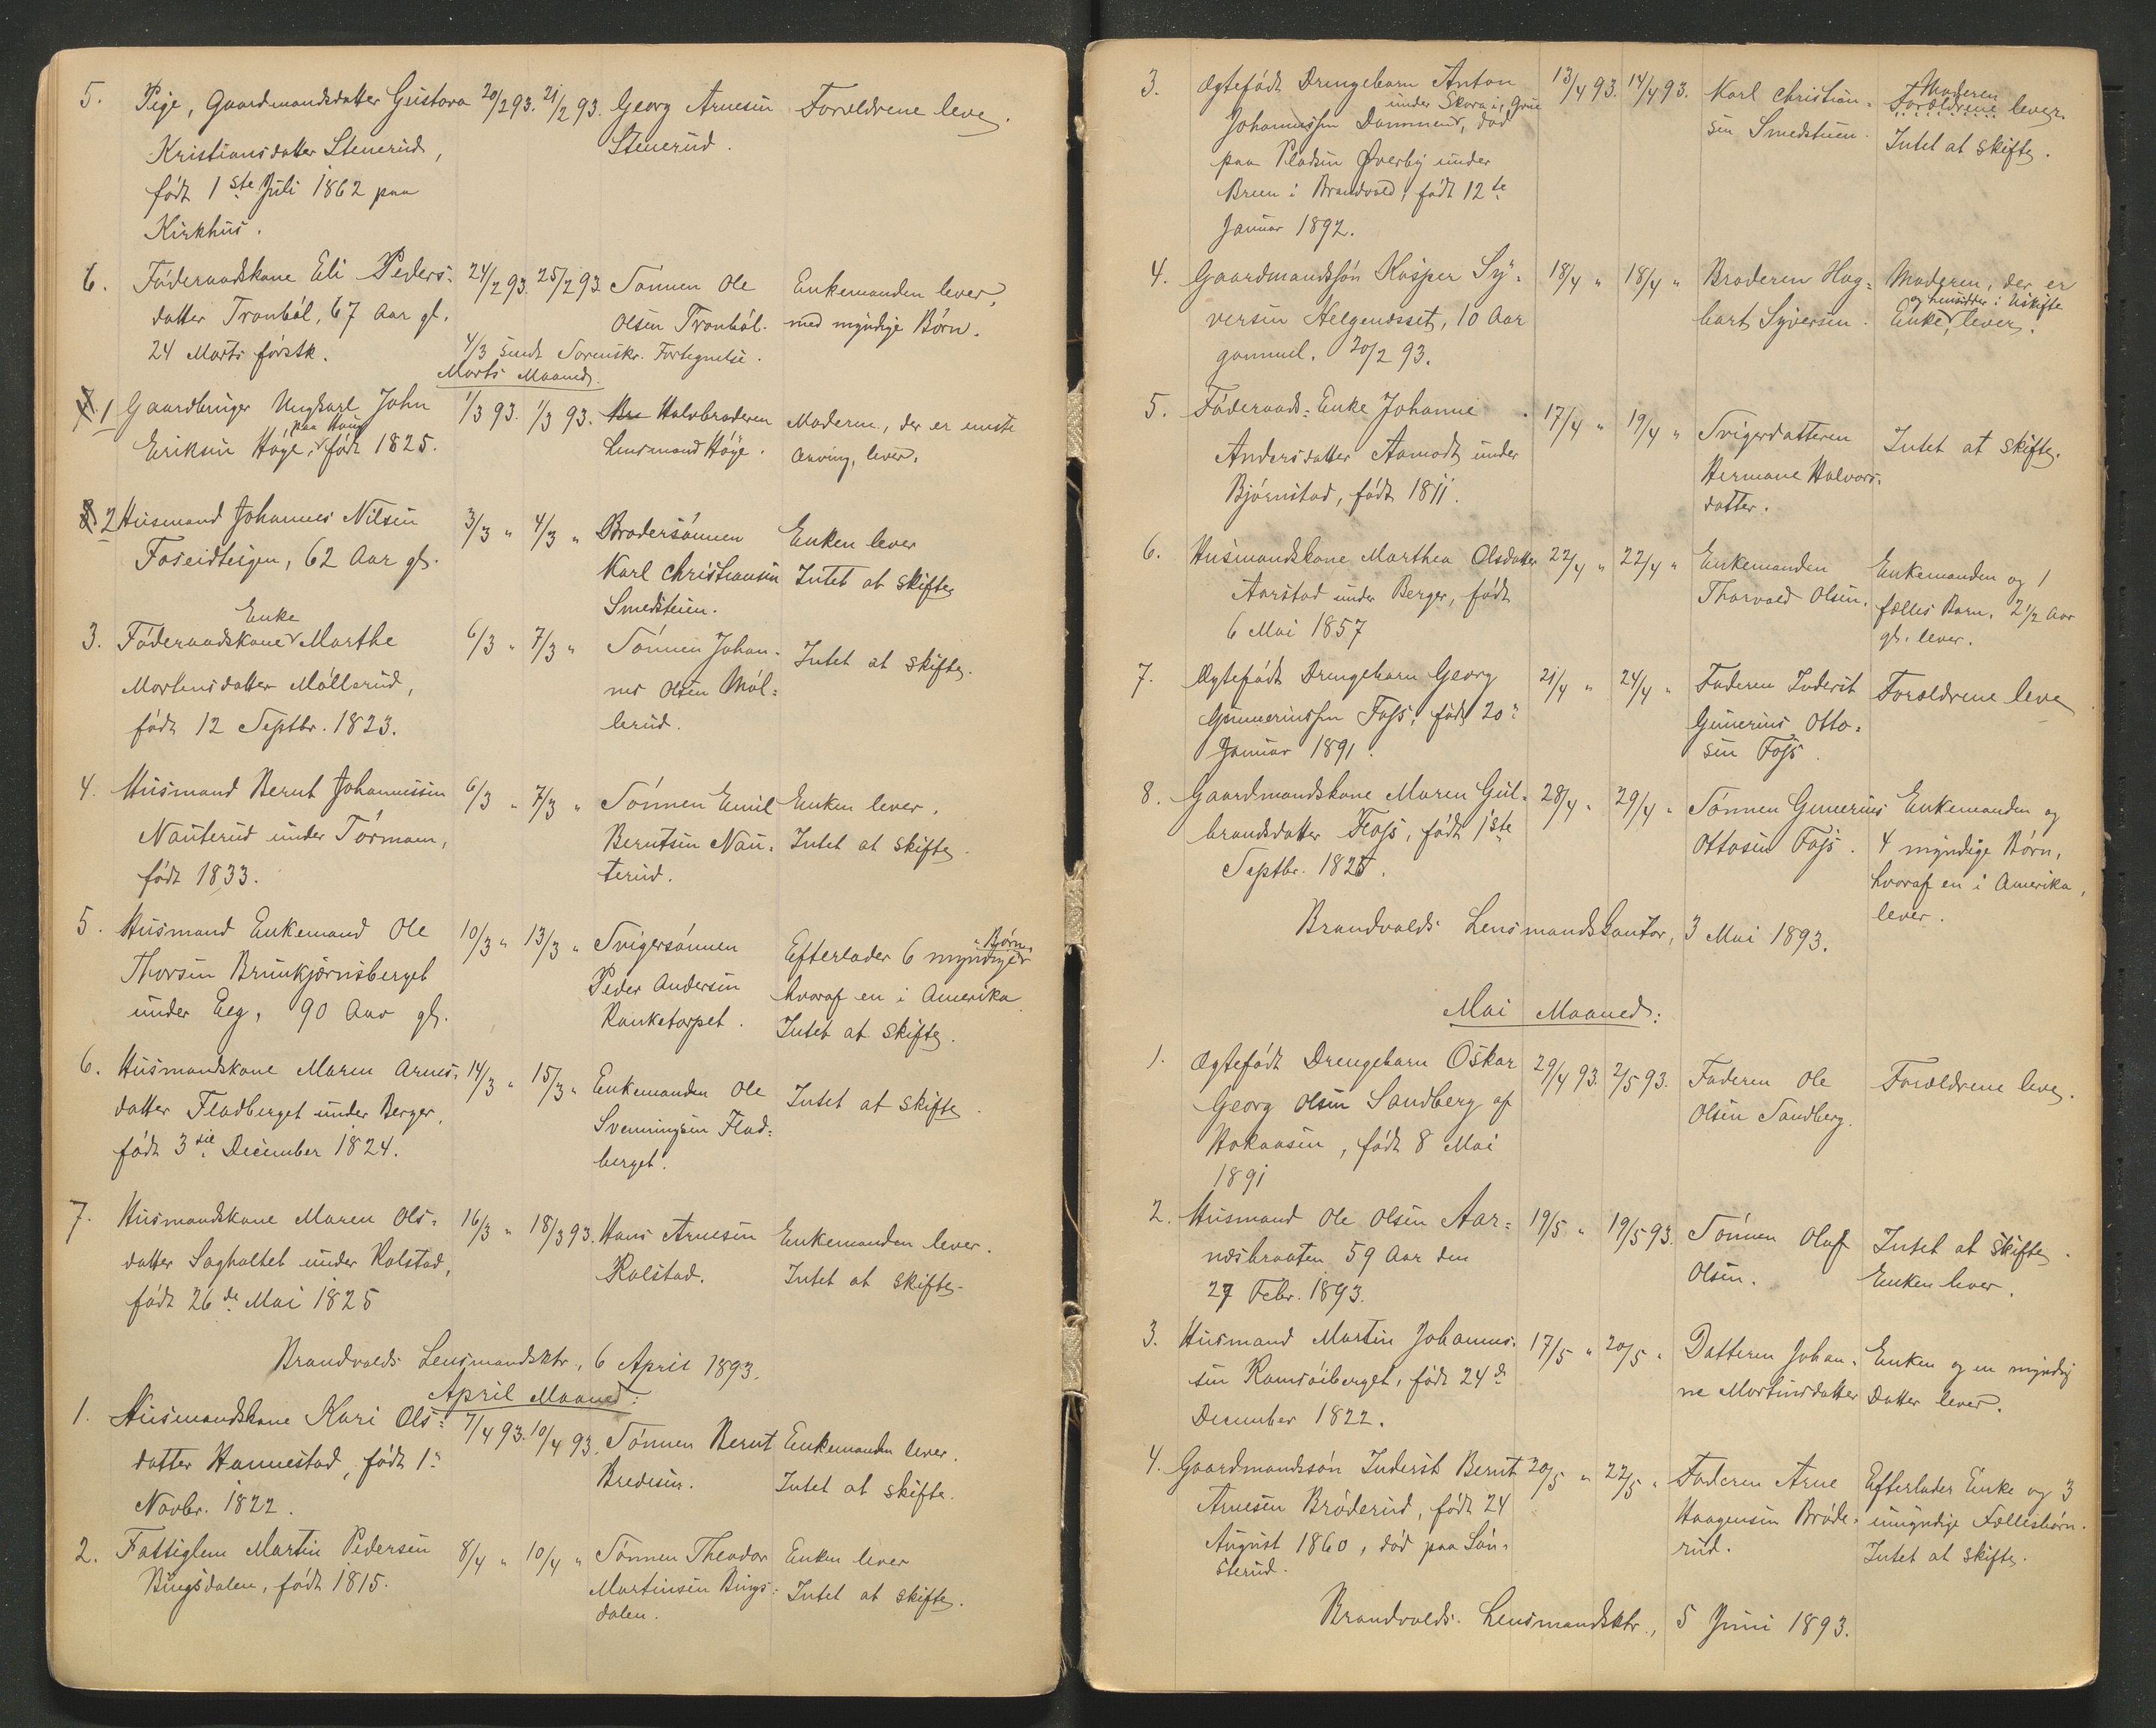 5. Pige, Gaardmandsdatter Gustava 20/2 93. 21/2 93. Georg Arnesen Forældrene leve.
Kristiansdatter Stenerud, Stenerud.
født 1ste Juli 1862 paa
Kirkhus.
6. Føderaadskone Eli Peders- 24/2 93. 25/2 93 Sønnen Ole Enkemanden lever,
datter Tronbøl, 67 Aar gl. Olsen Tronbøl. med myndige Børn.
24 Marts førstk. 4/3 sendt Sorenskr. Fortegnelse.
Marts Maaned.
7. 1 Gaardbruger Ungkarl John 1/3 93. 1/3 93. Halvbroderen Moderen, der er eneste
paa Haug
Eriksen Høge, født 1825. Lensmand Høge. Arving, lever.
8. 2 Husmand Johannes Nilsen 3/3 " 4/3 " Brodersønnen Enken lever
Foseidteigen, 62 Aar gl. Karl Christiansen Intet at skifte
Smedstuen.
Enke
3. Føderaadskone Marthe 6/3 " 7/3 " Sønnen Johan- Intet at skifte.
Mortensdatter Møllerud, nes Olsen Møl-
født 12 Septbr. 1823. lerud.
4. Husmand Bernt Johannessen 6/3 " 7/3 " Sønnen Emil Enken lever.
Nauterud under Tormoen, Berntsen Nau- Intet at skifte.
født 1833. terud.
5. Husmand Enkemand Ole 10/3 " 13/3 " Svigersønnen Efterlader 6 myndige Børn,
Thorsen Brunkjærnsberget Peder Andersen hvoraf en i Amerika
under Eeg, 90 Aar gl. Kanketorpet. Intet at skifte.
6. Husmandskone Maren Arnes- 14/3 " 15/3 " Enkemanden Ole Intet at skifte.
datter Fladberget under Berger, Svenningsen Flad-
født 3die December 1824. berget.
7. Husmandskone Maren Ols- 16/3 " 18/3 93. Hans Arnesen Enkemanden lever.
datter Sagholtet under Kolstad, Kolstad. Intet at skifte.
født 26de Mai 1825
Brandvalds Lensmandsktr., 6 April 1893.
April Maaned:
1. Husmandskone Kari Ols- 7/4 93. 10/4 93. Sønnen Bernt Enkemanden lever.
datter Hammestad, født 1. Bredesen. Intet at skifte.
Novbr. 1822.
2. Fattiglem Martin Pedersen 8/4 " 10/4 " Sønnen Theodor Enken lever
Bingsdalen, født 1815. Martinsen Bings- Intet at skifte.
dalen.
3. Ægtefødt Drengebarn Anton 13/4 93. 14/4 93. Karl Christian- Moderen
under Skara i Grue Forældrene lever.
Johannessen Dammen, død sen Smedstuen. Intet at skifte.
paa Pladsen Øverby under
Breen i Brandvold, født 12te
Januar 1892.
4. Gaardmandssøn Kasper Sy- 18/4 " 18/4 " Broderen Hag- Moderen, der er
og hensidder i Uskifte
versen Helgenæsset, 10 Aar bart Syversen. Enke, lever.
gammel. 20/2 93.
5. Føderaads-Enke Johanne 17/4 " 19/4 " Svigerdatteren Intet at skifte.
Andersdatter Aamodt under Hermane Halvors-
Bjørnstad, født 1811. datter.
6. Husmandskone Marthea Olsdatter 22/4 " 22/4 " Enkemanden Enkemanden og 1
Aarstad under Berger, født Thorvald Olsen. fælles Barn, 2 1/2 Aar
6 Mai 1857 gl. lever.
7. Ægtefødt Drengebarn Georg 21/4 " 24/4 " Faderen Inderst Forældrene leve.
Gunneriussen Foss, født 20. Gunerius Otto-
Januar 1891. sen Foss
8. Gaardmandskone Maren Gul- 28/4 " 29/4 " Sønnen Gunerius Enkemanden og
brandsdatter Foss, født 1ste Ottosen Foss. 4 myndige Børn,
Septbr. 1825. hvoraf en i Amerika,
lever.
Brandvolds Lensmandskontor, 3 Mai 1893.
Mai Maaned:
1. Ægtefødt Drengebarn Oskar 29/4 93. 2/5 93. Faderen Ole Forældrene leve.
Georg Olsen Sandberg af Olsen Sandberg.
Hokaasen, født 8 Mai
1891
2. Husmand Ole Olsen Aar- 19/5 " 19/5 93. Sønnen Olaf Intet at skifte.
næsbraaten 59 Aar den Olsen. Enken lever.
27 Febr. 1893.
3. Husmand Martin Johannes- 17/5 " 20/5 " Datteren Johan- Enken og en myndig
sen Ramsøiberget, født 24de ne Martinsdatter Datter lever.
December 1822.
4. Gaardmandssøn Inderst Bernt 20/5 " 22/5 " Faderen Arne Efterlader Enke og 3
Arnesen Brøderud, født 24 Haagensen Brøde- umyndige Fællesbørn.
August 1860, død paa Løn- rud. Intet at skifte.
sterud.
Brandvolds Lensmandsktr., 5 Juni 1893.